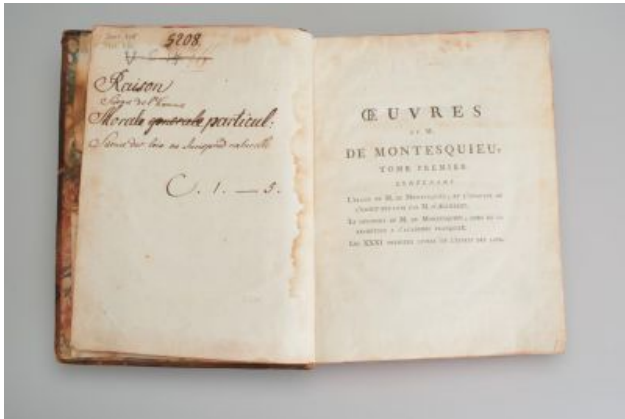 5208.
Raison
Morale generale particul:
C. 1. — 5.
ŒUVRES
DE M.
DE MONTESQUIEU,
TOME PREMIER
CONTENANT
L'ÉLOGE DE M. DE MONTESQUIEU; ET L'ANALYSE DE
L'ESPRIT DES LOIX PAR M. D'ALEMBERT.
LE DISCOURS DE M. DE MONTESQUIEU, LORS DE SA
RÉCEPTION A L'ACADÉMIE FRANÇOISE.
LES XXXI PREMIERS LIVRES DE L'ESPRIT DES LOIX.